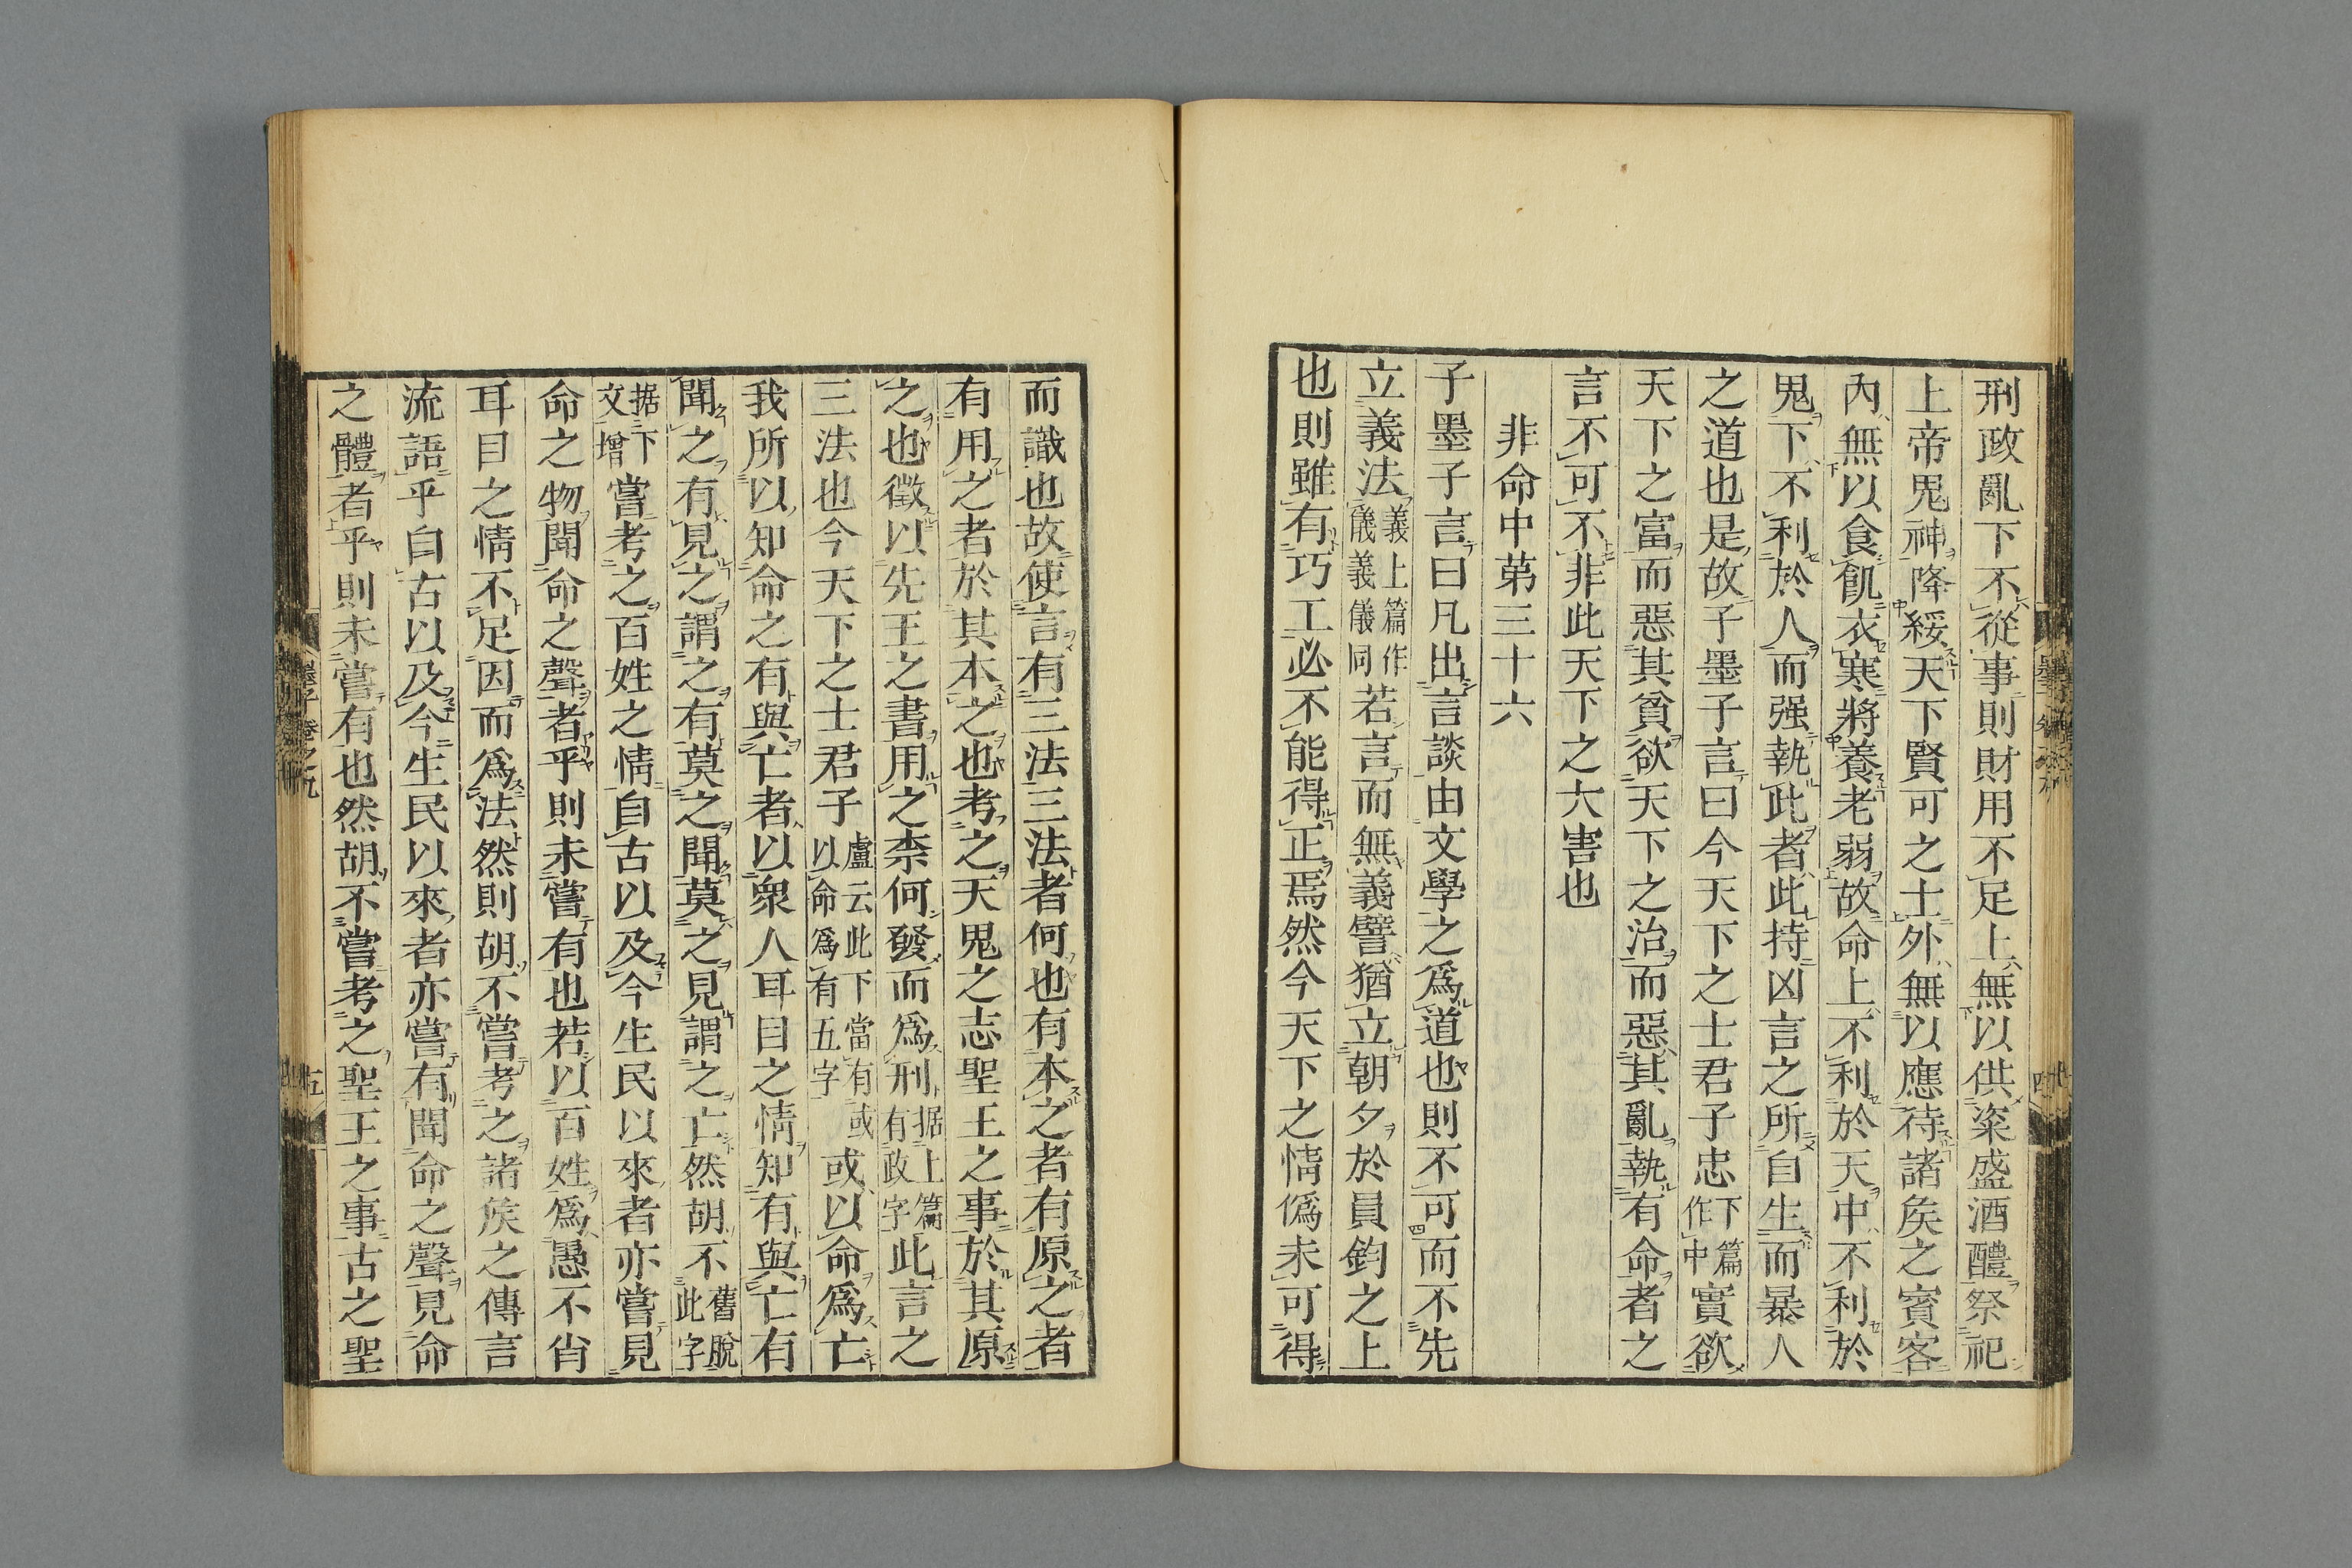 刑政亂下不從事則財用不足上無以供粢盛酒醴祭祀
上帝鬼神降綏天下賢可之士外無以應待諸矦之賓客
內無以食飢衣寒將養老弱故命上不利於天中不利於
鬼下不利於人而强執此者此持凶言之所自生而暴人
之道也是故子墨子言曰今天下之士君子忠下篇作中實欲
天下之富而惡其貧欲天下之治而惡其亂執有命者之
言不可不非此天下之大害也
非命中第三十六
子墨子言曰凡出言談由文學之爲道也則不可而不先
立義法義上篇作儀義儀同若言而無義譬猶立朝夕於員鈞之上
也則雖有巧工必不能得正焉然今天下之情僞未可得
而識也故使言有三法三法者何也有本之者有原之者
有用之者於其本之也考之天鬼之志聖王之事於其原
之也徵以先王之書用之柰何發而爲刑据上篇有政字此言之
三法也今天下之士君子盧云此下當有或以命爲有五字或以命爲亡
我所以知命之有與亡者以衆人耳目之情知有與亡有
聞之有見之謂之有莫之聞莫之見謂之亡然胡不舊脫此字
据下文增嘗考之百姓之情自古以及今生民以來者亦嘗見
命之物聞命之聲者乎則未嘗有也若以百姓爲愚不肖
耳目之情不足因而爲法然則胡不嘗考之諸矦之傳言
流語乎自古以及今生民以來者亦嘗有聞命之聲見命
之體者乎則未嘗有也然胡不嘗考之聖王之事古之聖
墨子卷之九
五